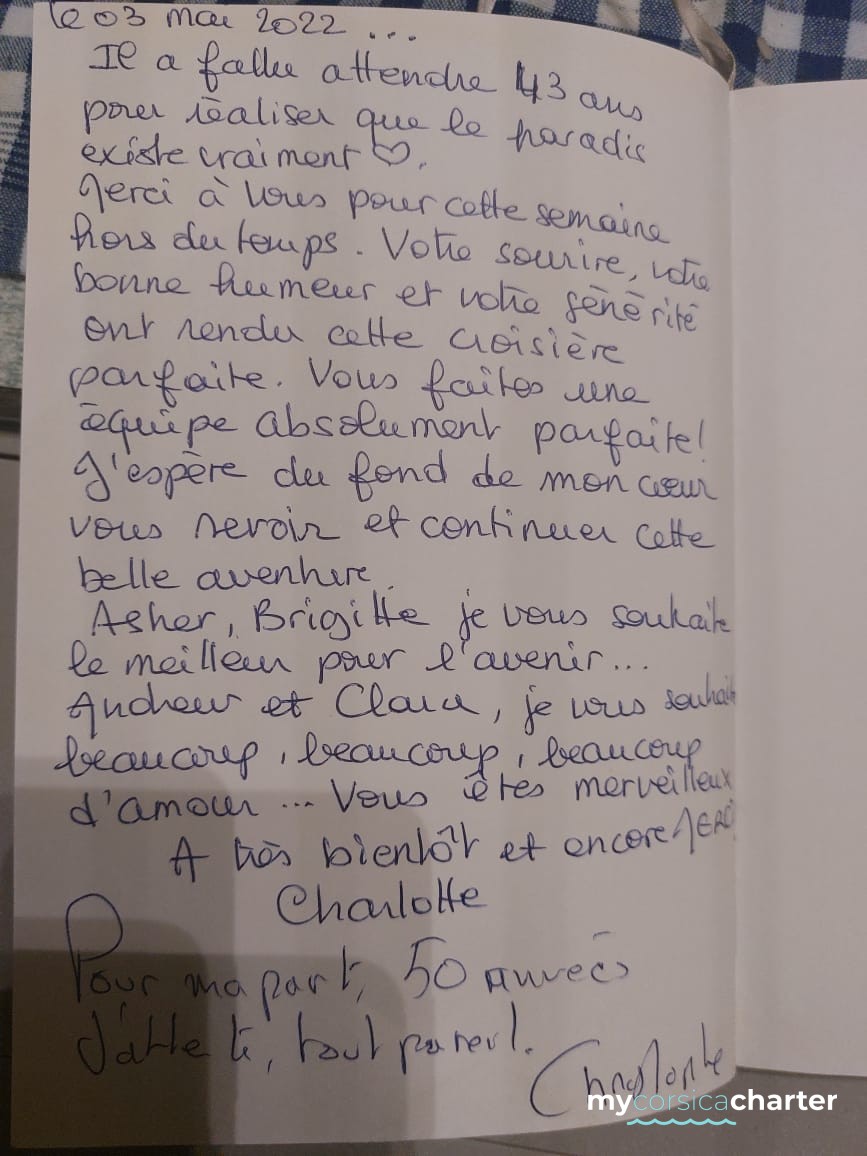 le 03 mai 2022 ...
Il a fallu attendre 43 ans
pour réaliser que le paradis
existe vraiment ♡.
Merci à vous pour cette semaine
hors du temps. Votre sourire, votre
bonne humeur et votre générité
ont rendu cette croisière
parfaite. Vous faites une
équipe absolument parfaite!
J'espère du fond de mon cœur
vous revoir et continuer cette
belle aventure.
Asher, Brigitte je vous souhaite
le meilleur pour l'avenir...
Andrew et Clara, je vous souhaite
beaucoup, beaucoup, beaucoup
d'amour ... Vous êtes merveilleux
A très bientôt et encore MERCI
Charlotte
Pour ma part, 50 années
d'attente, tout pareil.
mycorsicacharter